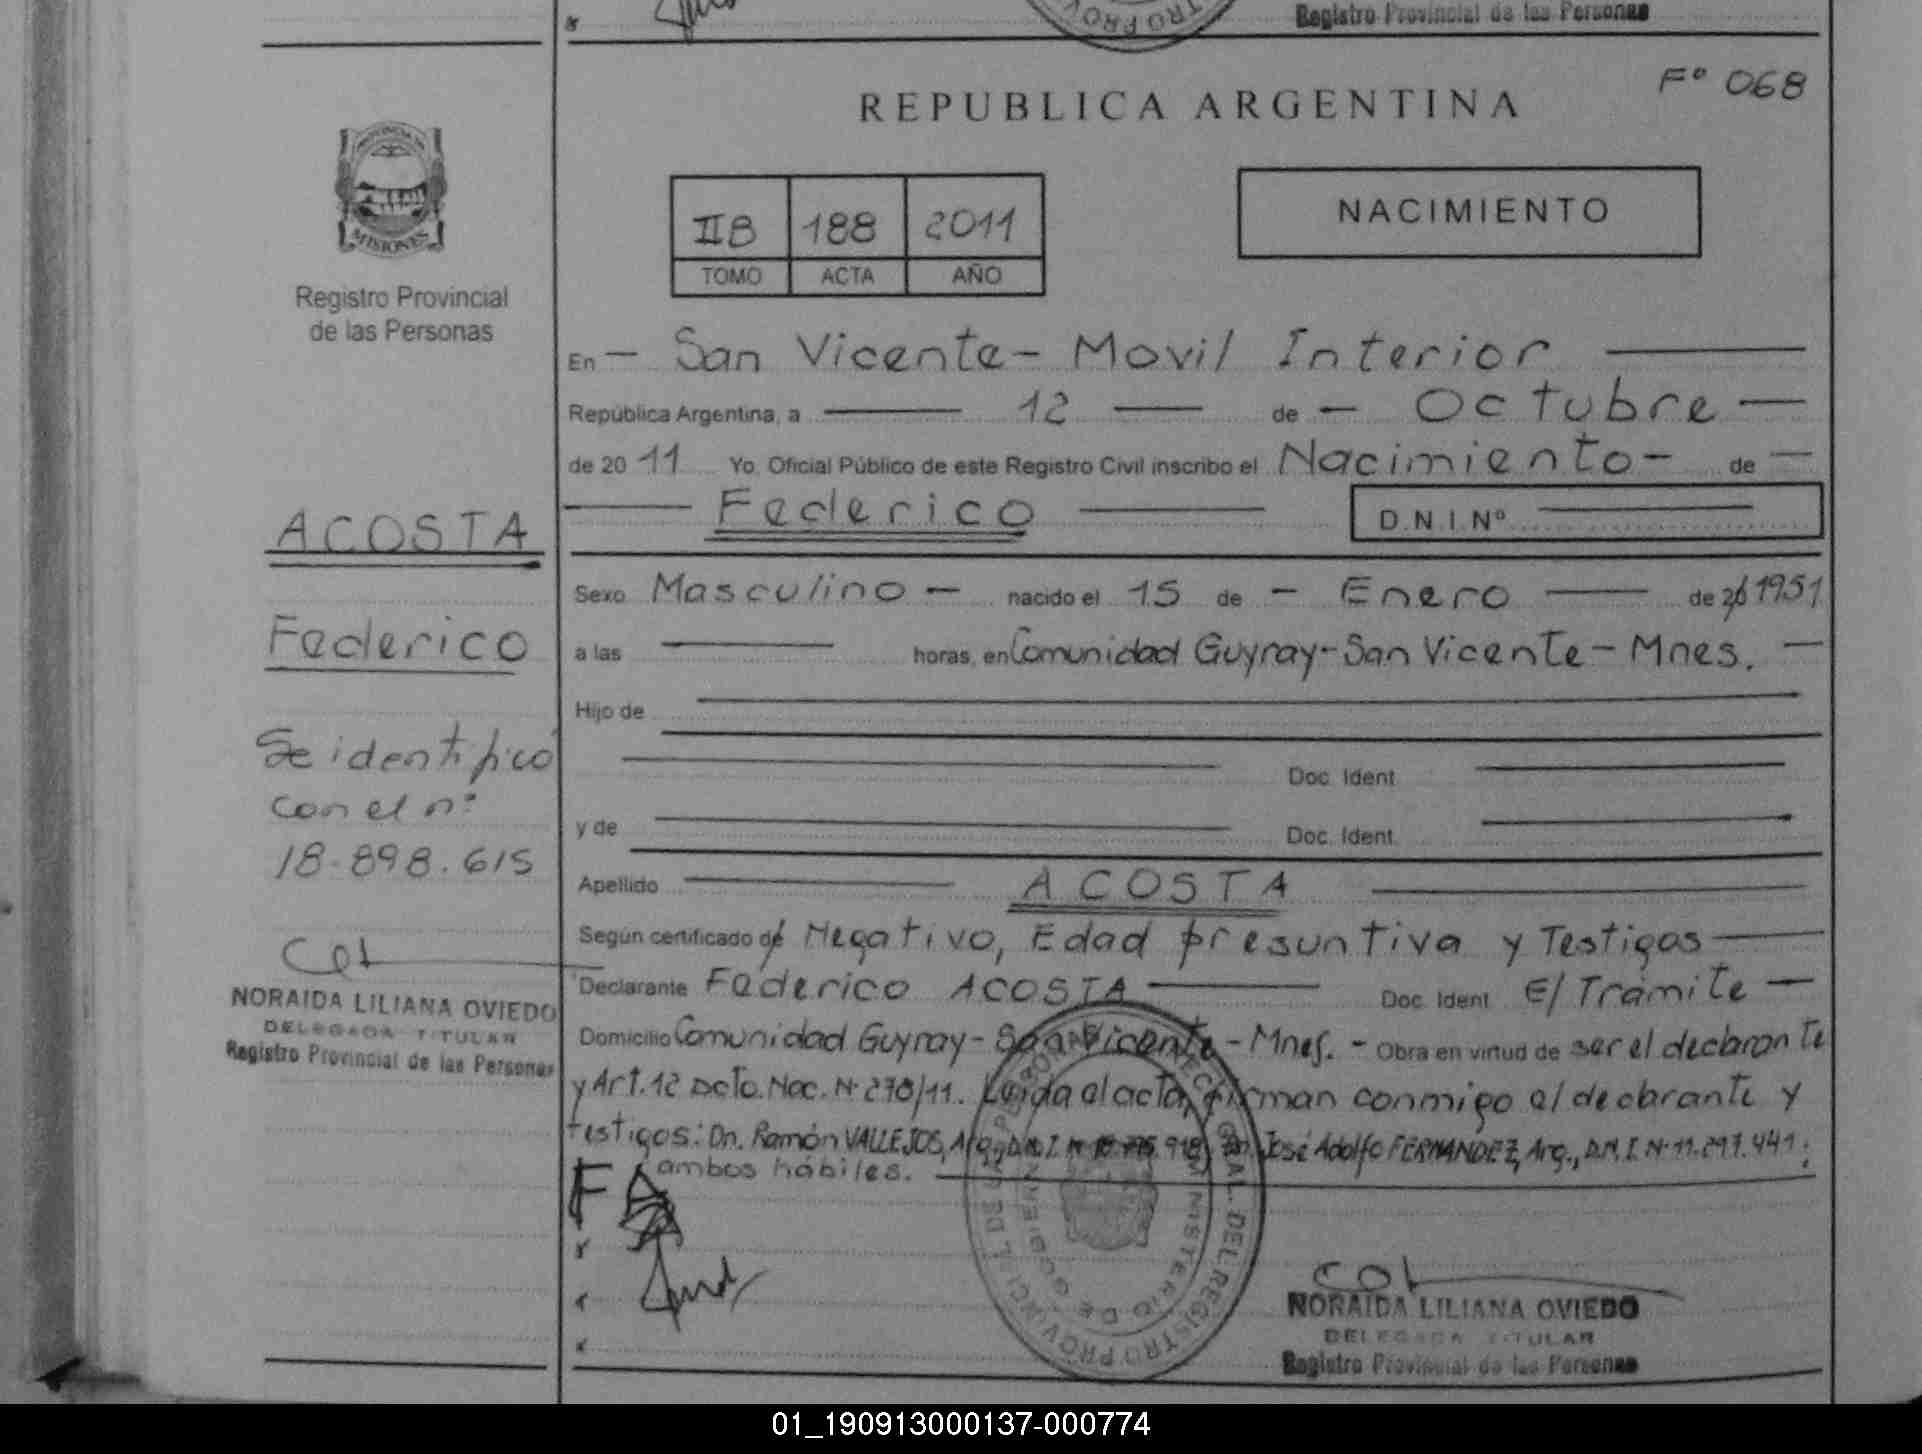 Registro Provincial de las Personas
Fº 068
REPUBLICA ARGENTINA
PROVINCIA DE
MISIONES
Registro Provincial
de las Personas
IIB 188 2011
TOMO ACTA AÑO
NACIMIENTO
En San Vicente - Movil Interior
República Argentina, a 12 de Octubre
de 2011 Yo, Oficial Público de este Registro Civil inscribo el Nacimiento de
Federico D.N.I. Nº
ACOSTA
Federico
Se identificó
con el nº
18.898.615
NORAIDA LILIANA OVIEDO
DELEGADA TITULAR
Registro Provincial de las Personas
Sexo Masculino nacido el 15 de Enero de 1951
a las horas, en Comunidad Guyray - San Vicente - Mnes.
Hijo de
Doc. Ident.
y de Doc. Ident.
Apellido ACOSTA
Según certificado de Negativo, Edad presuntiva y Testigos
Declarante Federico ACOSTA Doc. Ident. E/ Trámite
Domicilio Comunidad Guyray - San Vicente - Mnes. - Obra en virtud de ser el declarante
y Art. 12 Dcto. Nac. Nº 278/11. Leída el acta, firman conmigo el declarante y
testigos: Dn. Ramón VALLEJOS, Arg., D.N.I. Nº Dn. José Adolfo FERNANDEZ, Arg., D.N.I. Nº 11.297.441;
ambos hábiles.
FA
NORAIDA LILIANA OVIEDO
DELEGADA TITULAR
Registro Provincial de las Personas
01_190913000137-000774